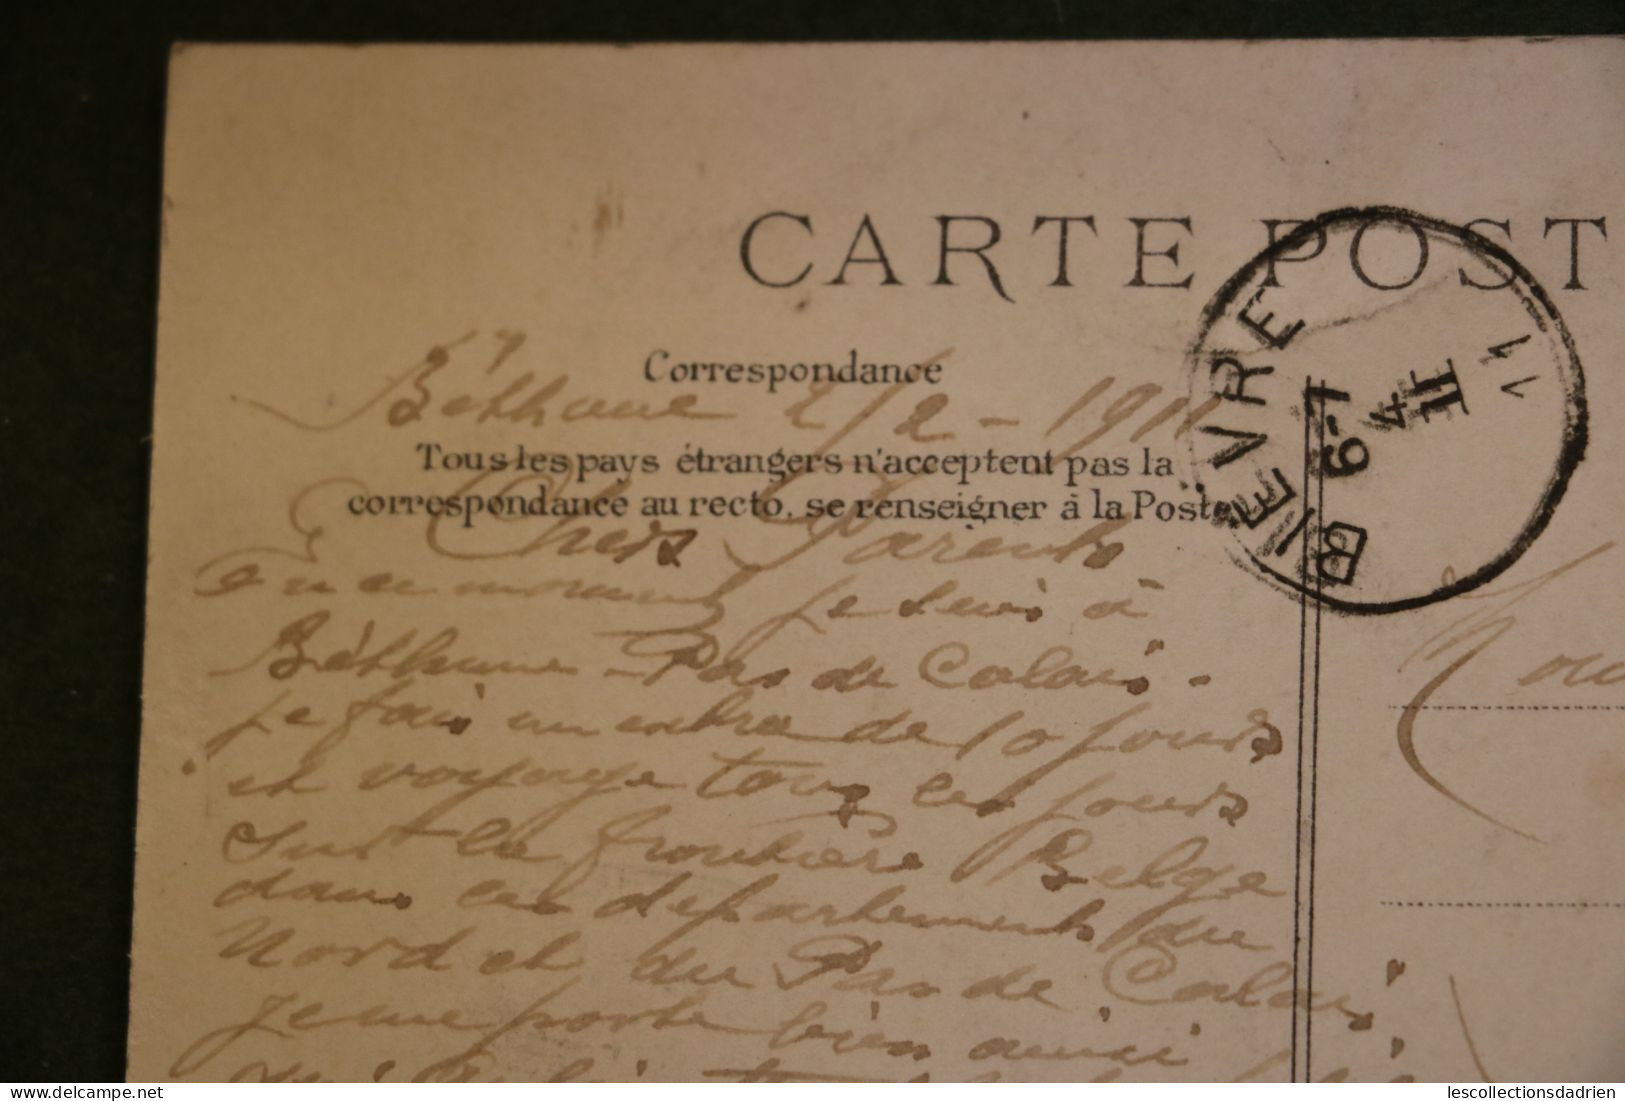 CARTE POST
Correspondance
Béthune 2/2-1911
Tous les pays étrangers n'acceptent pas la
correspondance au recto, se renseigner à la Poste
Chers Parents
En ce moment je suis à
Béthune - Pas de Calais -
je fais un extra de 10 jours
et voyage tous les jours
sur la frontière Belge
dans les départements du
Nord et du Pas de Calais
je me porte bien ainsi
BIEVRE
6-7
4
II
11
lescollectionsdadrien